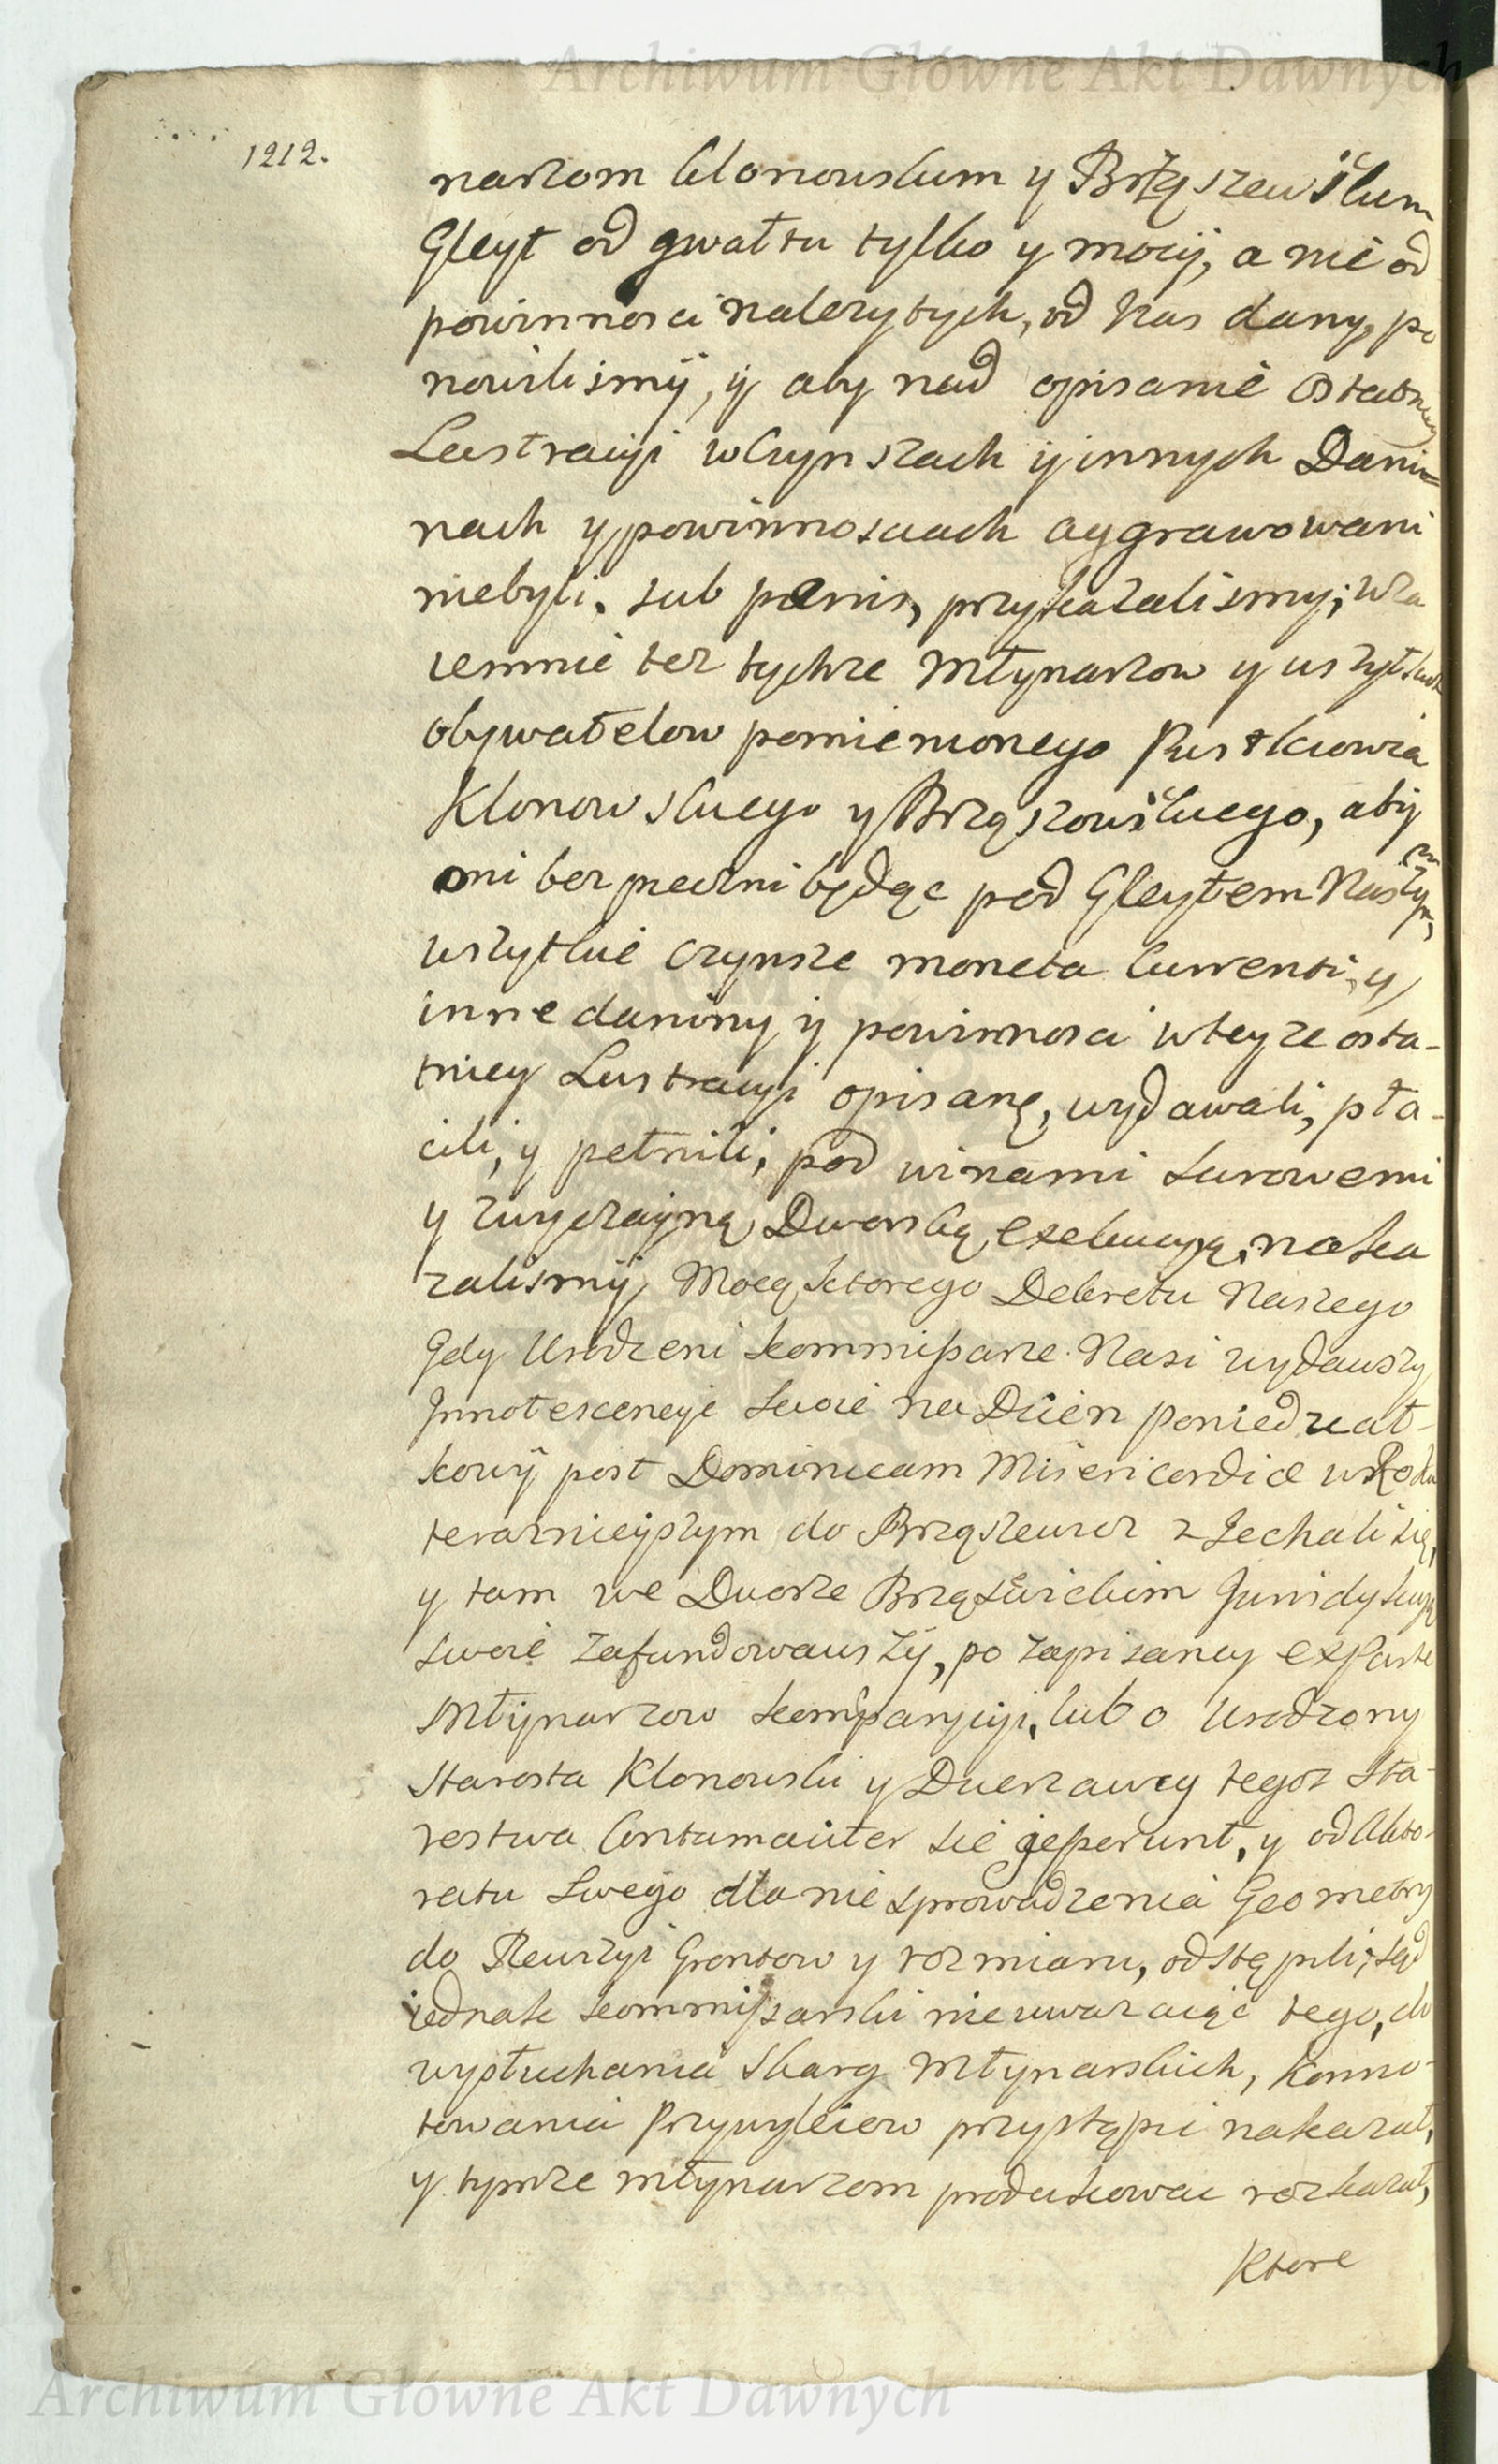 Archiwum Główne Akt Dawnych
1212.
narzom Klonowskum y Brząszewskum
Gleyt od gwałtu tylko y mocy, a nie od
powinnosci nalezytych, od Nas dany, po
nowilismÿ, ÿ aby nad opisanie ostatniey
Lustracyi w Czynszach ÿ innych Dani-
nach y powinnosciach aggrawowani
niebyli, sub pænis, przykazalismy; wza
iemnie tez tychze Młynarzow y wszytkich
obywatelow pomienionego Pustkowia
Klonowskiego y Brząszowskiego, abÿ
oni bezpieczni będąc pod Gleytem Naszym,
wszytkie Czynsze moneta Currenti, y
inne daniny ÿ powinnosci w teyze osta-
tniey Lustracyi opisane, wydawali, pła-
cili, y pełnili, pod winami Surowemi
y zwyczayną Dworską exekucyą, naka
zalismÿ, Mocą ktorego Dekretu Naszego
gdy Urodzeni kommissarze Nasi wydawszy
Innotescencye swoie na Dzien poniedział-
kowÿ post Dominicam Misericordiæ w Roku
teraznieyszym do Brząszewic ziechali się,
y tam we Dworze Brząszwickim Jurisdykcyą
swoię zafundowawszÿ, po zapisaney ex parte
Młÿnarzow komparycyi, lubo Urodzony
Starosta Klonowski y Dzierzawcy tegoz sta-
rostwa Contumaciter se gesserunt, y od Akto-
ratu Swego dla nie sprowadzenia Geometry
do Rewizyi Grontow y rozmiaru, odstąpili; sąd
iednak kommissarski nie uwazaiąc tego, do
wysłuchania Skarg Młynarskich, konno-
towania Przywyleiow przystąpic nakazał,
y tymze młynarzom produkowac rozkazał,
Ktore
Archiwum Główne Akt Dawnych